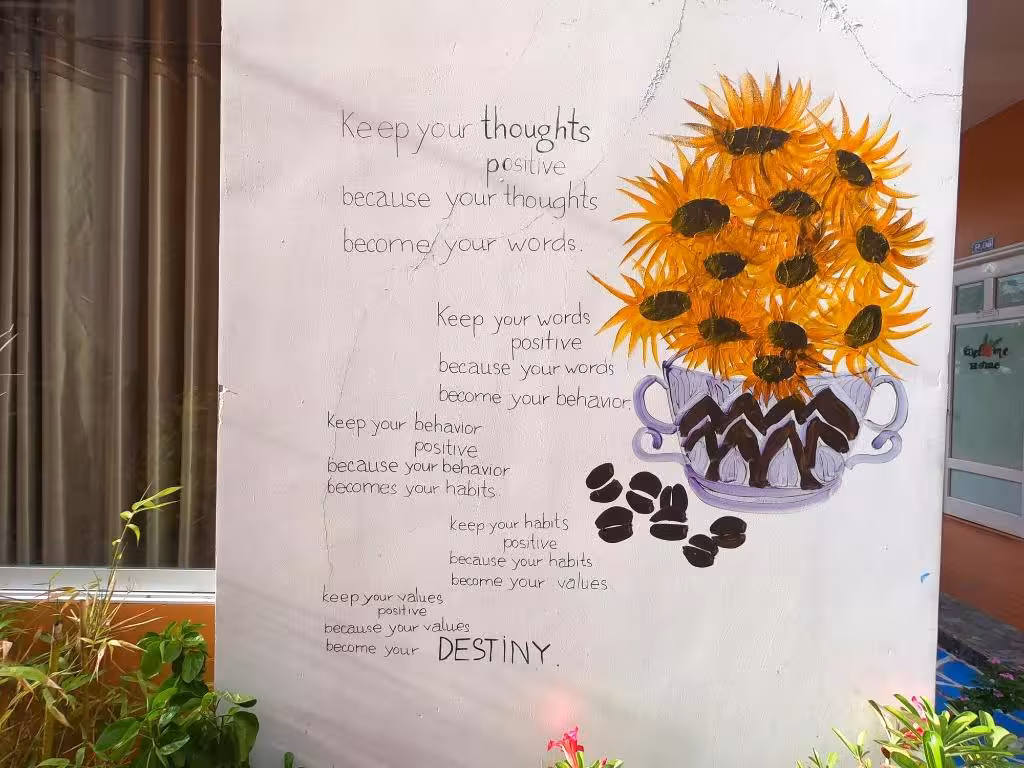 Keep your thoughts
positive
because your thoughts
become your words.
Keep your words
positive
because your words
become your behavior.
Keep your behavior
positive
because your behavior
becomes your habits.
keep your habits
positive
because your habits
become your values.
keep your values
positive
because your values
become your DESTINY.
Home